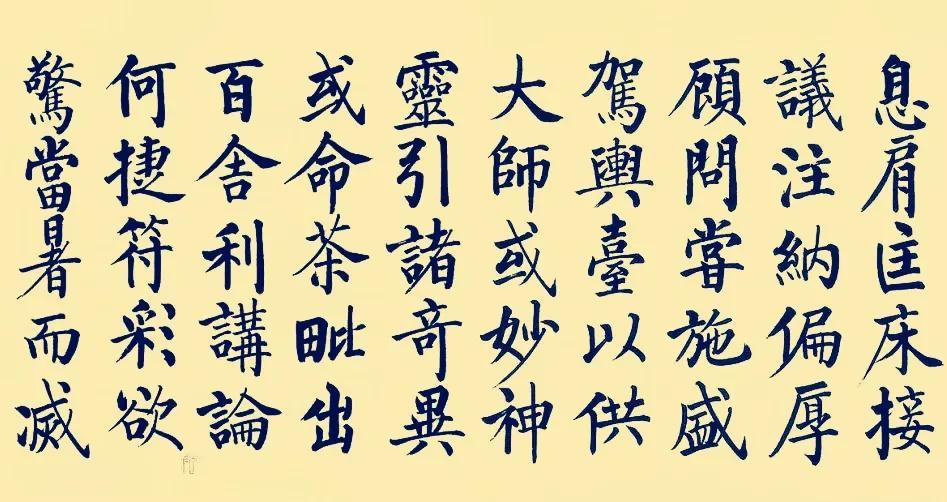 息肩匡床接
議注納偏厚
顧問嘗施盛
駕輿臺以供
大師或妙神
靈引諸奇異
或命荼毗出
百舍利講論
何捷符彩欲
驚當暑而滅